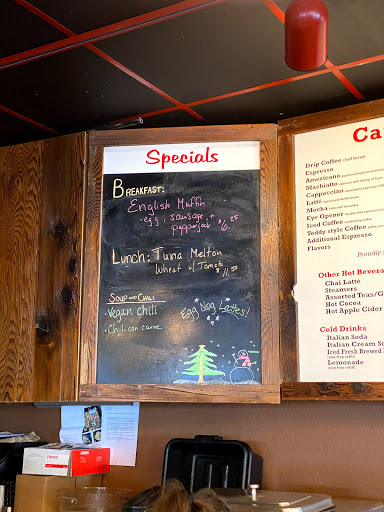 Specials
Breakfast:
English Muffin
egg, sausage, +
pepperjak $6.25
Lunch: Tuna Melton
Wheat w/ Tomato
$11.50
Soup and Chili
Vegan Chili
Chili con carne
Egg Nog Lattes!
Ca
Drip Coffee (Self Serve)
Espresso
Americano
Machiatto
Cappuccino
Latté
Mocha
Eye Opener
Iced Coffee
Toddy style Coffee
Additional Espresso
Flavors
Proudly
Other Hot Bevera
Chai Latté
Steamers
Assorted Teas/G
Hot Cocoa
Hot Apple Cider
Cold Drinks
Italian Soda
Italian Cream So
Iced Fresh Brewed
(one free refill)
Lemonade
(one free refill)